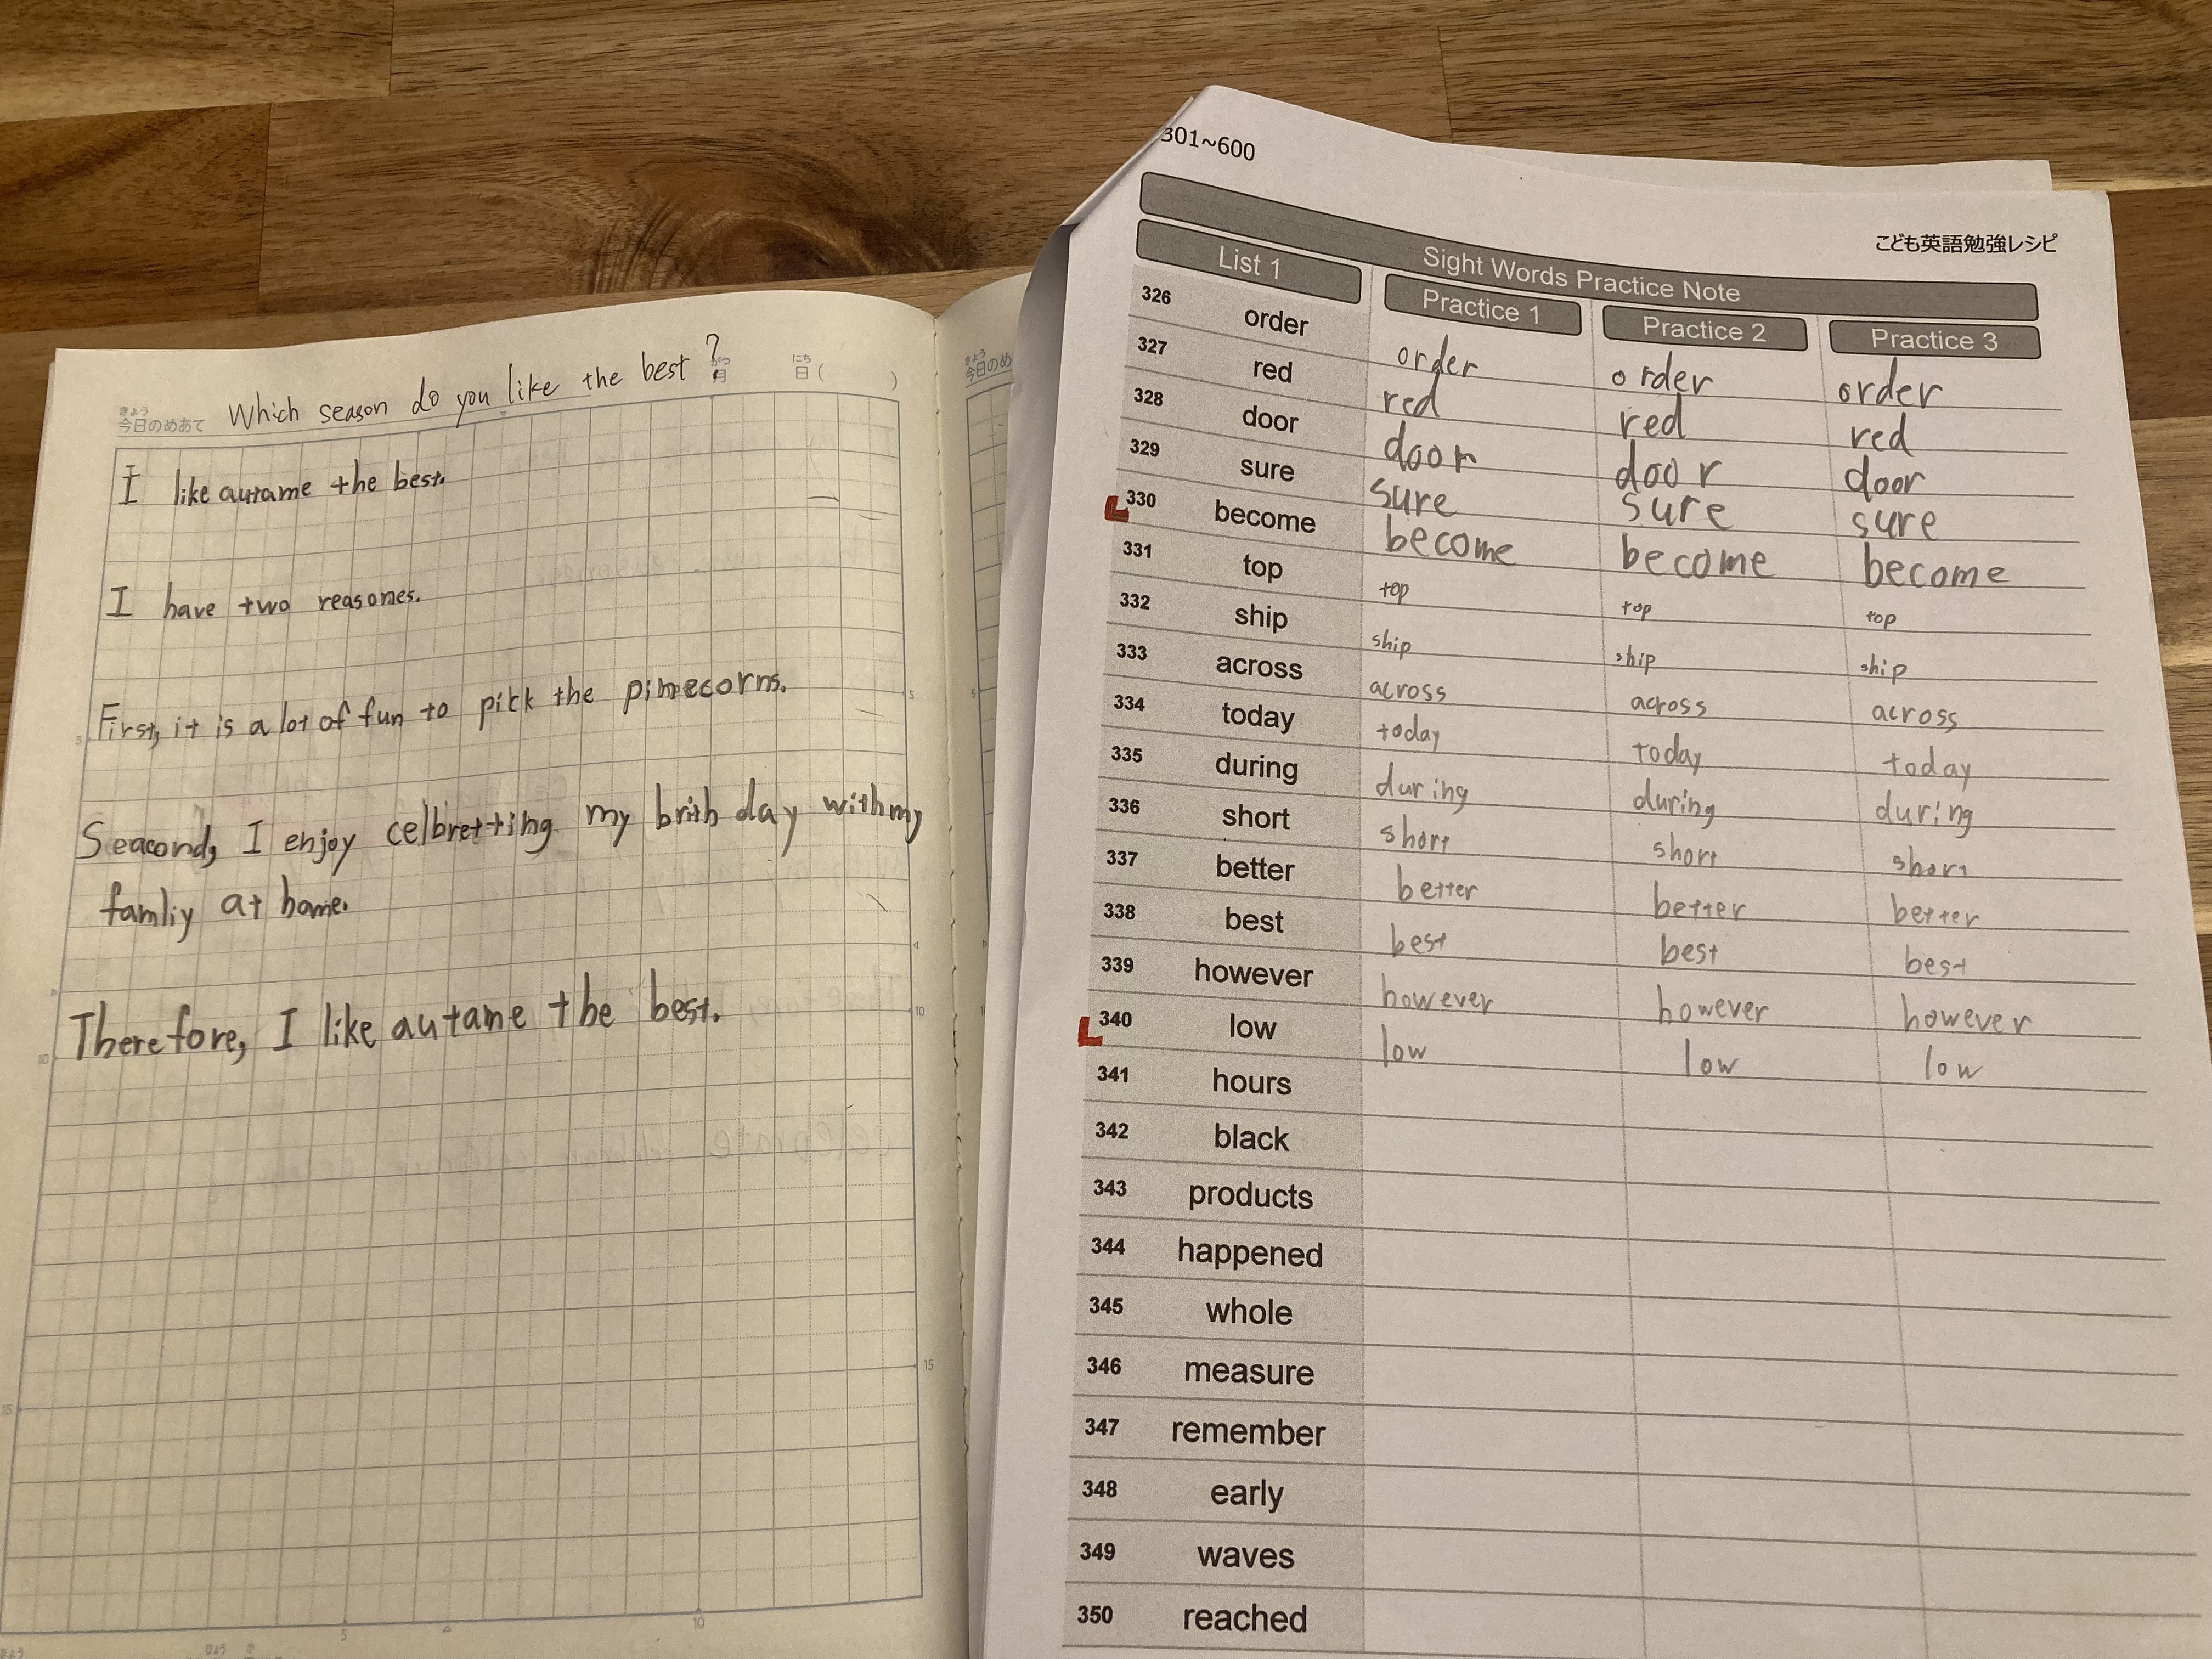 Which season do you like the best?
きょう
今日のめあて
がつ
月
にち
日( )
I like autame the best.
I have two reasones.
First, it is a lot of fun to pick the pinecorns.
Seacond, I enjoy celbretting my brith day with my
famliy at home.
Therefore, I like autame the best.
5
5
10
10
15
15
5
10
きょう
今日のめ
5
301~600
こども英語勉強レシピ
Sight Words Practice Note
List 1 Practice 1 Practice 2 Practice 3
326 order order order order
327 red red red red
328 door door door door
329 sure sure sure sure
330 become become become become
331 top top top top
332 ship ship ship ship
333 across across across across
334 today today today today
335 during during during during
336 short short short short
337 better better better better
338 best best best best
339 however however however however
340 low low low low
341 hours
342 black
343 products
344 happened
345 whole
346 measure
347 remember
348 early
349 waves
350 reached